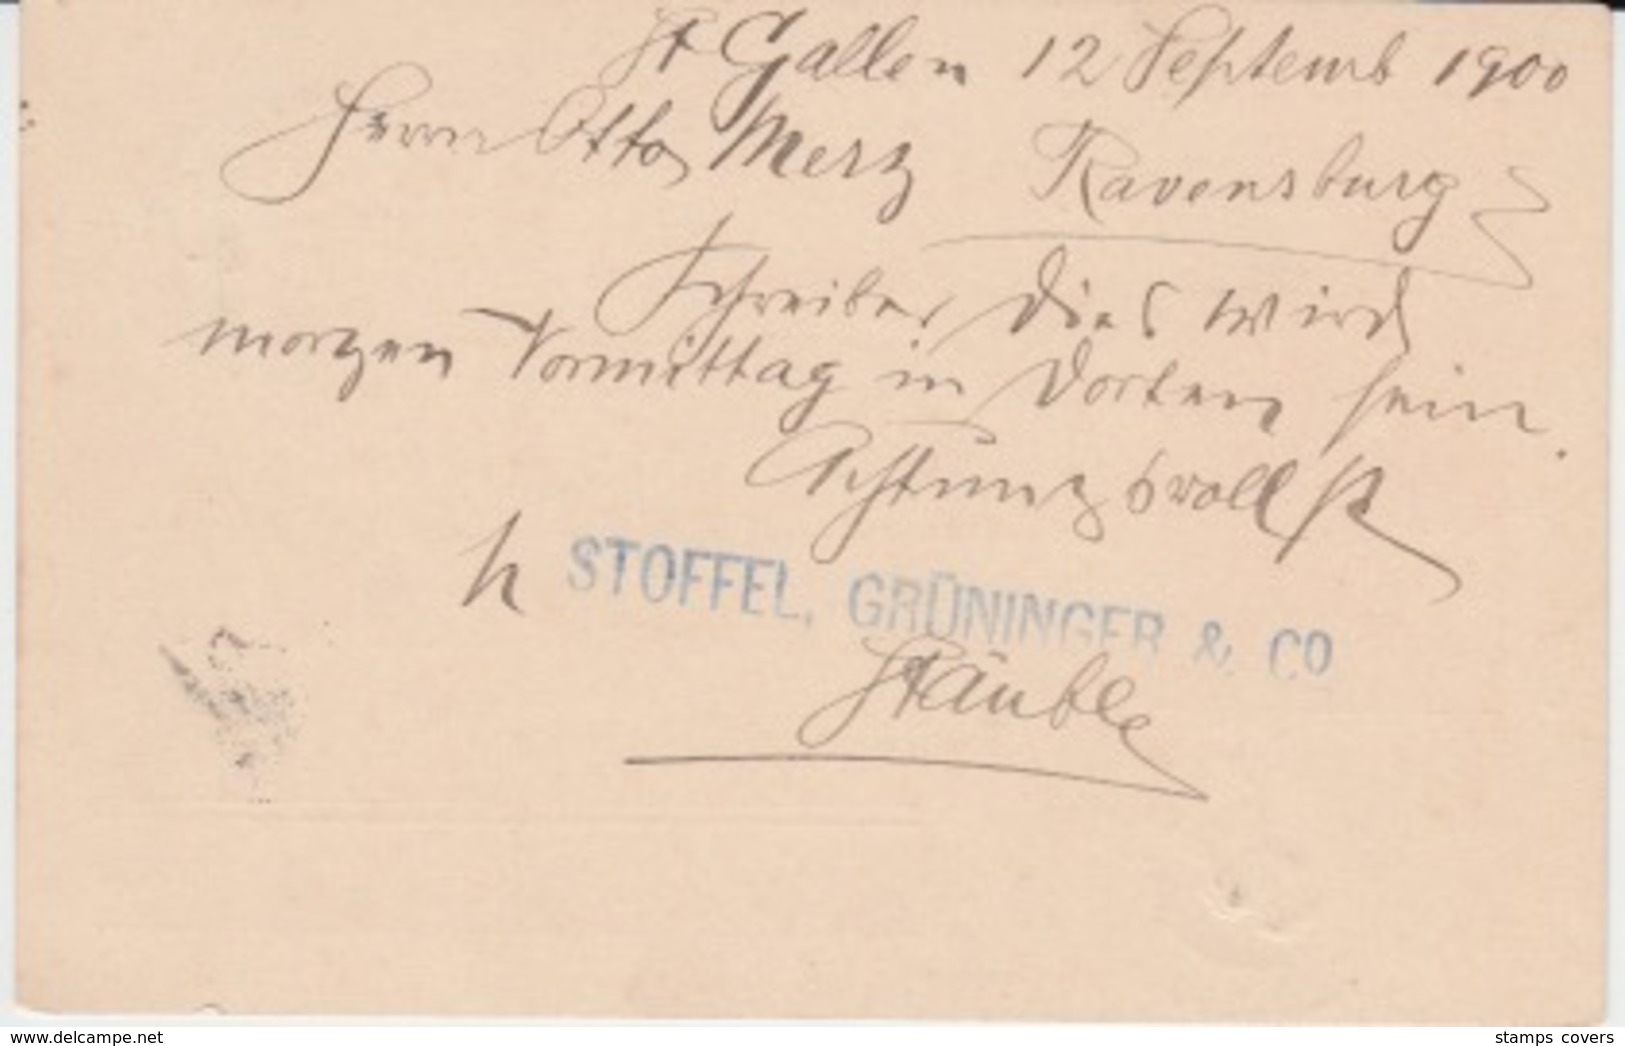 St Gallen 12 Septemb 1900
Herrn Otto Merz Ravensburg
Schreiber dies wird
morgen Vormittag in dorten sein.
Achtungsvollst
STOFFEL, GRÜNINGER & CO
Stäuble
delcampe.net
stamps covers